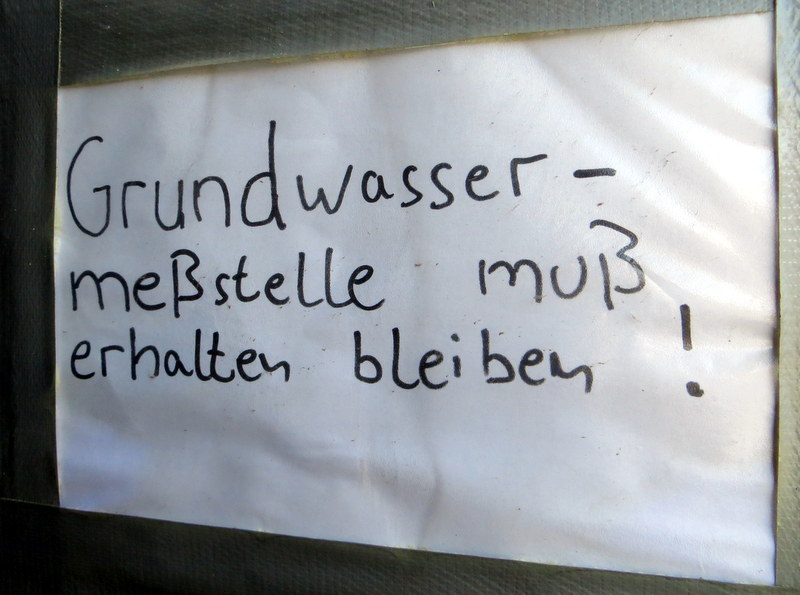 Grundwasser-
meßstelle muß
erhalten bleiben!